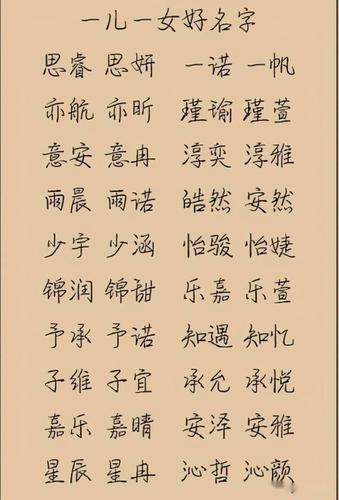 一儿一女好名字
思睿 思妍 一诺 一帆
亦航 亦昕 瑾瑜 瑾萱
意安 意冉 淳奕 淳雅
雨晨 雨诺 皓然 安然
少宇 少涵 怡骏 怡婕
锦润 锦甜 乐嘉 乐萱
予承 予诺 知遇 知忆
子维 子宜 承允 承悦
嘉乐 嘉晴 安泽 安雅
星辰 星冉 沁哲 沁颜